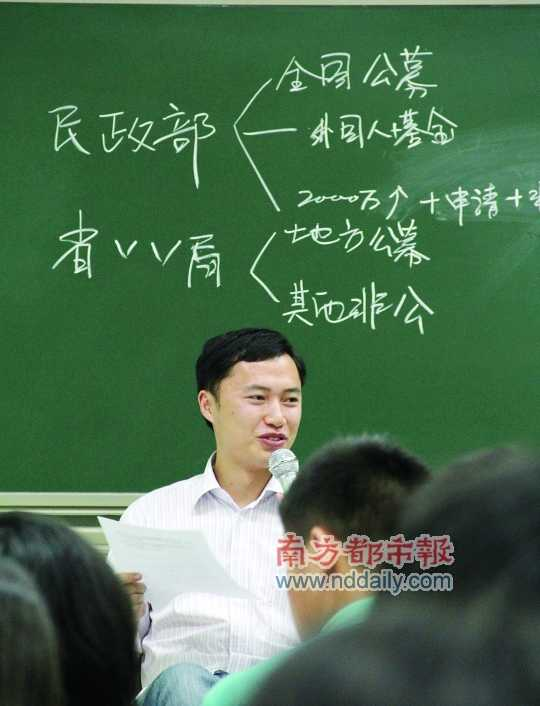 民政部
全国公募
外国人+基金
2000万个+申请+
省〃〃局
地方公募
其他非公
南方都市報
www.nddaily.com